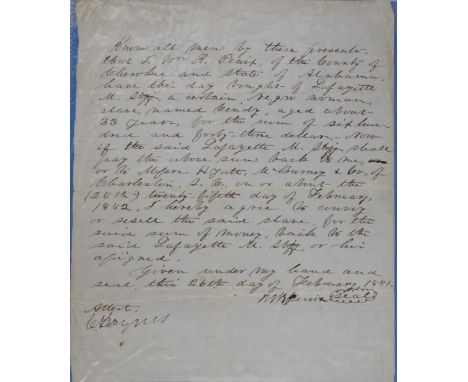 Know all men by these presents,
that I, Wm R. Penix, of the County of
Cherokee and state of Alabama,
have this day bought of Lafayette
M. a certain negro woman,
slave, named Cendy aged about
33 years, for the sum of six hun-
dred and forty-three dollars. Now
if the said Lafayette M. shall
pay the above sum back to me,
or to Messrs Hyatt, McBurney & Co, of
Charleston, S. C. on or about the
(25th) twenty-fifth day of February,
1852, I hereby agree to convey
or resell the said slave, for the
said sum of money, back to the
said Lafayette M. or his
assigned.
Given under my hand and
seal, this 26th day of February 1851.
Seal
Attest,